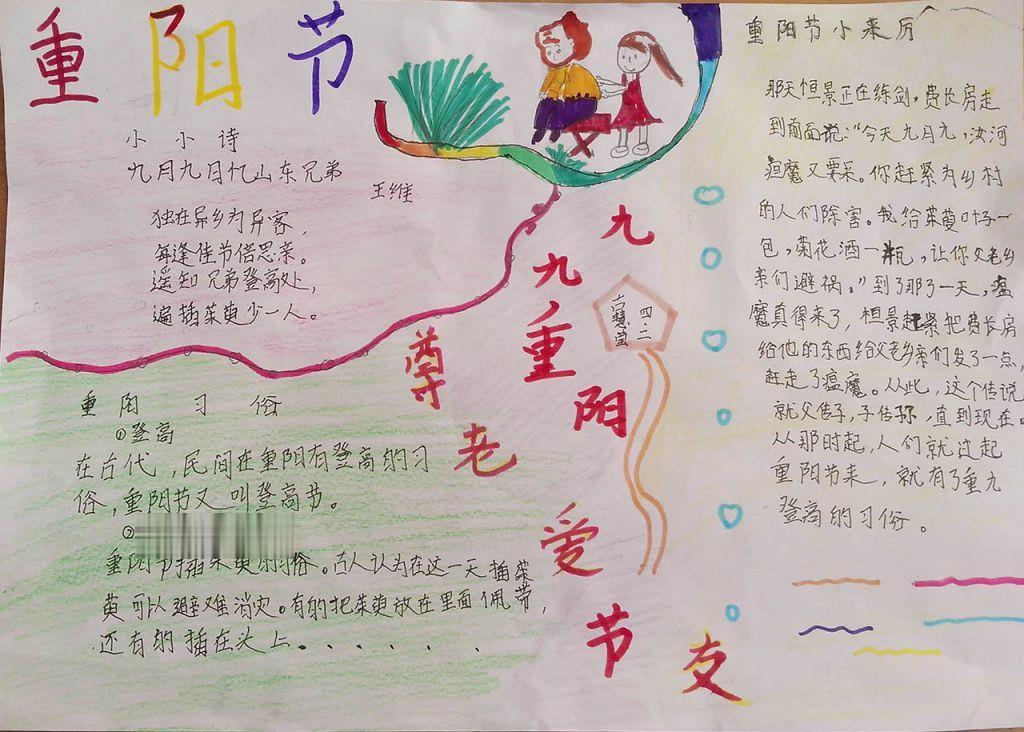 重阳节
小小诗
九月九日忆山东兄弟
王维
独在异乡为异客，
每逢佳节倍思亲。
遥知兄弟登高处，
遍插茱萸少一人。
重阳习俗
①登高
在古代，民间在重阳有登高的习
俗，重阳节又叫登高节。
②
重阳节插茱萸的习俗。古人认为在这一天插茱
萸可以避难消灾。有的把茱萸放在里面佩带，
还有的插在头上......
九九重阳节
尊老爱友
四.二
重阳节小来历
那天恒景正在练剑。费长房走
到前面说：“今天九月九，汝河
瘟魔又要来。你赶紧为乡村
的人们除害。我给茱萸叶子一
包，菊花酒一瓶，让你父老乡
亲们避祸。”到了那一天，瘟
魔真得来了，恒景赶紧把费长房
给他的东西给父老乡亲们发了一点，
赶走了瘟魔。从此，这个传说
就父传子，子传孙，直到现在。
从那时起，人们就过起
重阳节来，就有了重九
登高的习俗。